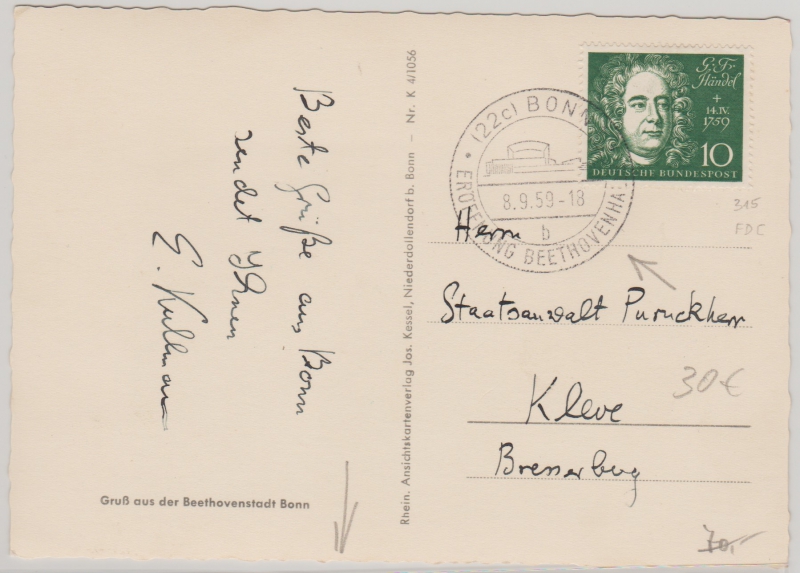 Beste Grüße aus Bonn
sendet Ihnen
E. Kullman
Gruß aus der Beethovenstadt Bonn
Rhein. Ansichtskartenverlag Jos. Kessel, Niederdollendorf b. Bonn – Nr. K 4/1056
G. Fr.
Händel
+
14.IV.
1759
10
DEUTSCHE BUNDESPOST
(22c) BONN
8.9.59-18
b
ERÖFFNUNG BEETHOVENHA
315
FDC
Herrn
Staatsanwalt Puruckherr
30€
Kleve
Bresserberg
70,-